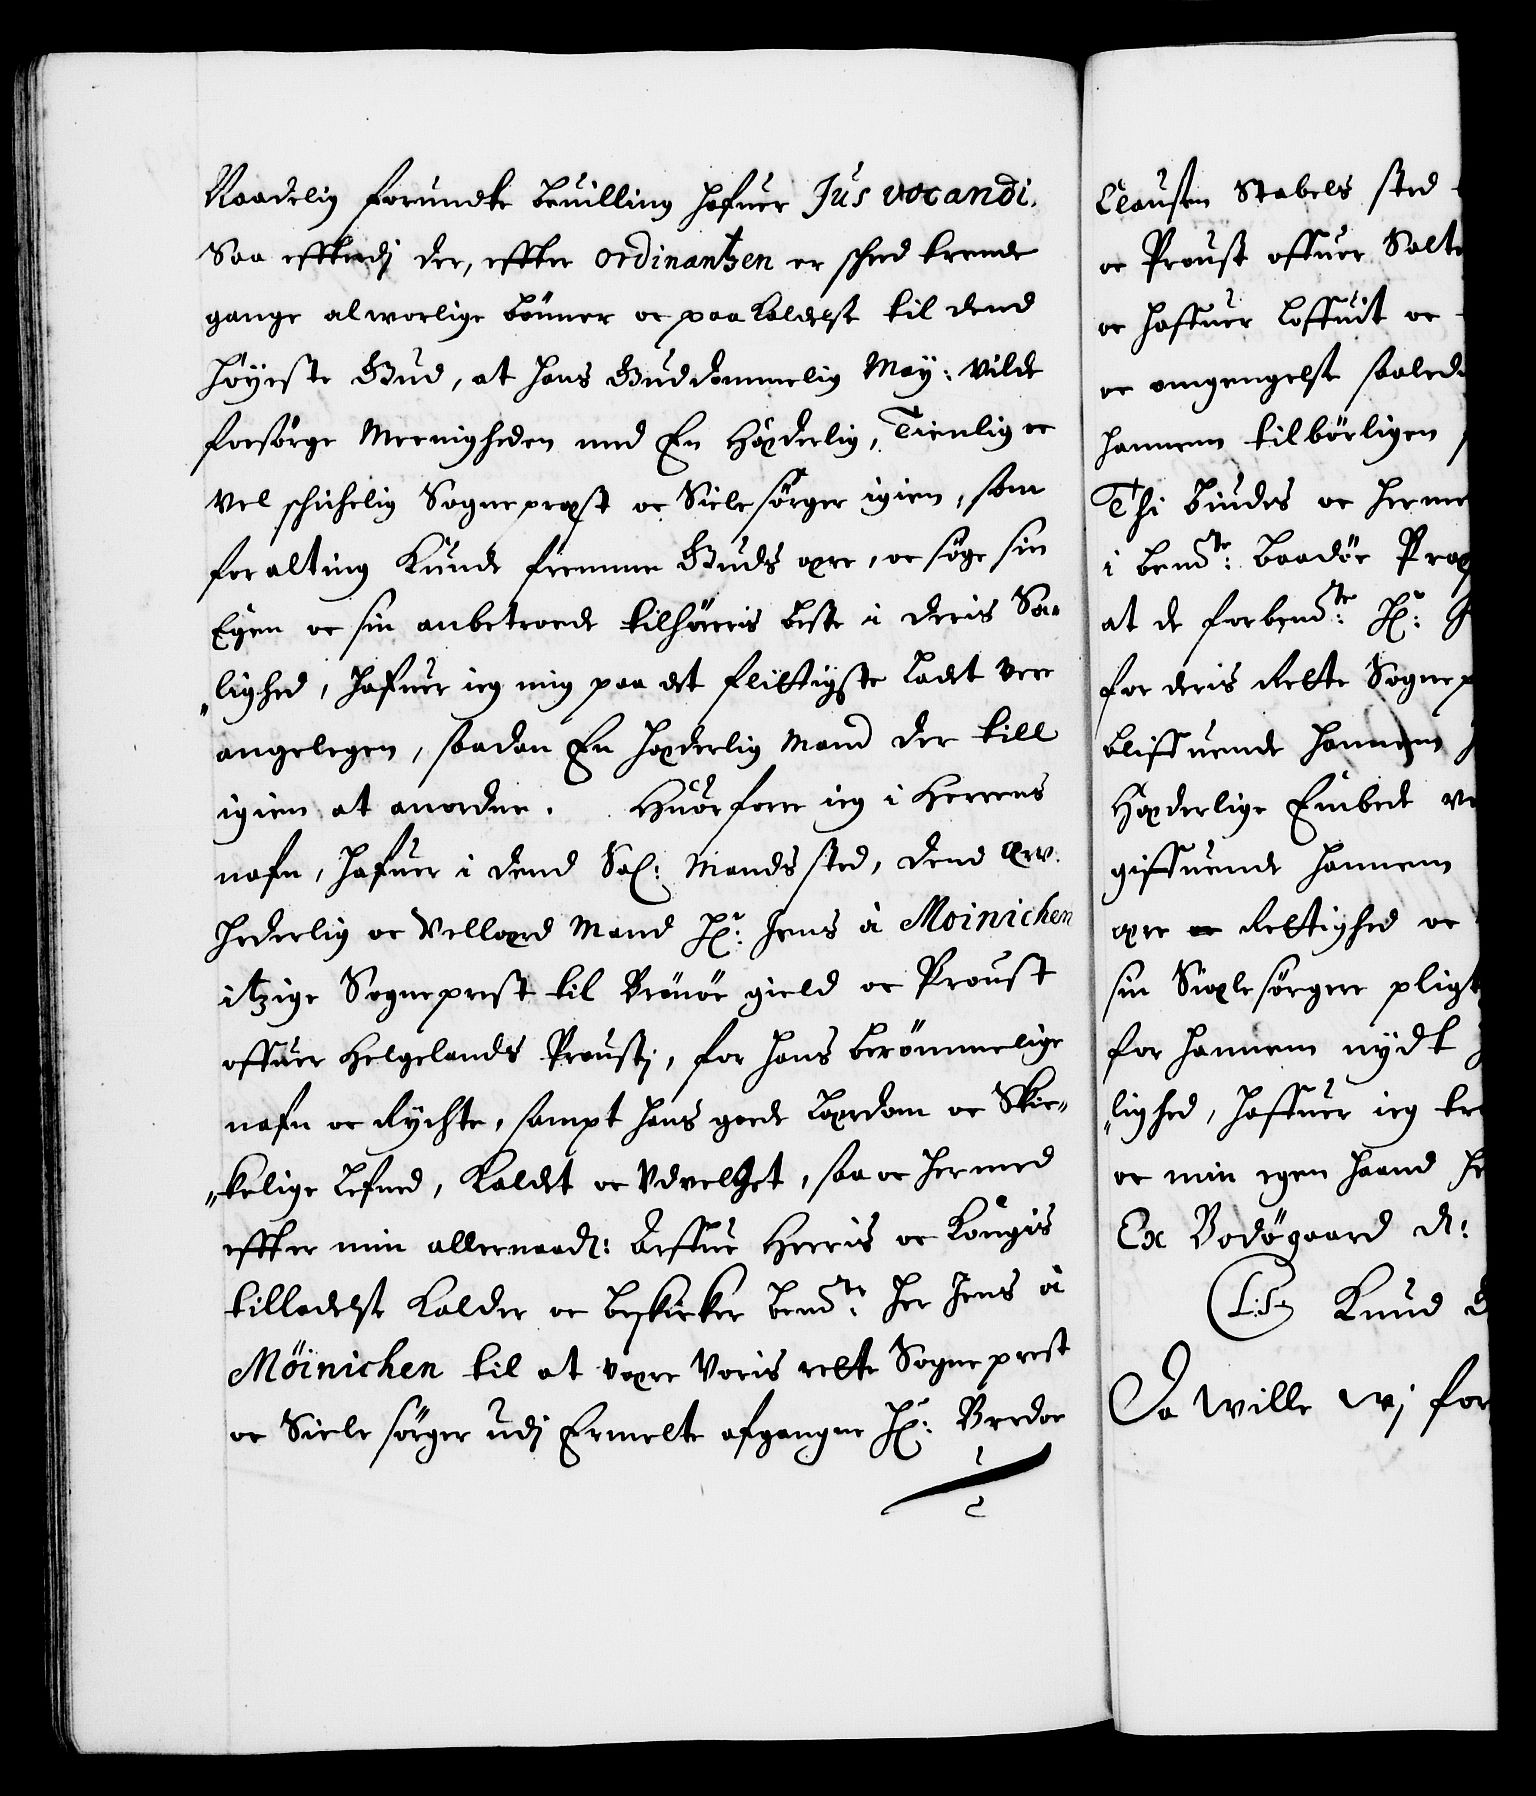 Naadelig forundte beuilling hafuer Jus vocandi.
Saa efftterdj der, effter ordinantzen er scheed trende
gange alworlige bönner oc paakaldelse til dend
höyeste Gud, at hans Guddommelig May: vilde
forsörge Meenigheden med En Hæderlig, Tienlig oc
vel schichelig Sogneprest oc Sielesörger igien, som
for alting Kunde fremme Guds ære, oc söge sin
Egen oc sin anbetroede tilhöreris beste i deris Sa-
"lighed, hafuer ieg mig paa det flittigste ladet vere
angelegen, saadan En hæderlig Mand der till
igien at anordne. Huorfore ieg i Herrens
nafn, hafuer i dend Sal: Mands sted, dend Ærv:
hederlig oc Vellærd Mand Hr: Jens à Moinichen
itzige Sogneprest til Brönöe gield oc Proust
offuer Helgelands Proustj, for hans berömmelige
nafn oc Rychte, sampt hans goede Lærdom oc Skic-
"kelige Lefned, Kaldet oc Vdvelget, saa oc hermed
effter min allernaadi: Arffue Herris oc Kongis
tilladelse Kalder oc beskicker bemte: Her Jens à
Möinichen til at være Voris rette Sogneprest
oc Sielesörger udj Ermelte afgangne Hr: Bredoe
Clausen Stabels sted
oc Proust offuer Salt
oc haffuer Loffuit oc
oc omgengelse saaled
hannem tilbörligen
Thi biudes oc herme
i bemte: Baadöe Præ
at de forbemte: Hr:
for deris Rette Sognep
bliffuende hannem
Hæderlige Embede
giffuende hannem
ære oc Rettighed oc
sin Siælesörgere pligt
for hannem nydt
"lighed, haffuer ieg
oc min egen haand
Ex Bodögaard d:
(L:S) Knud
Da wille wj for